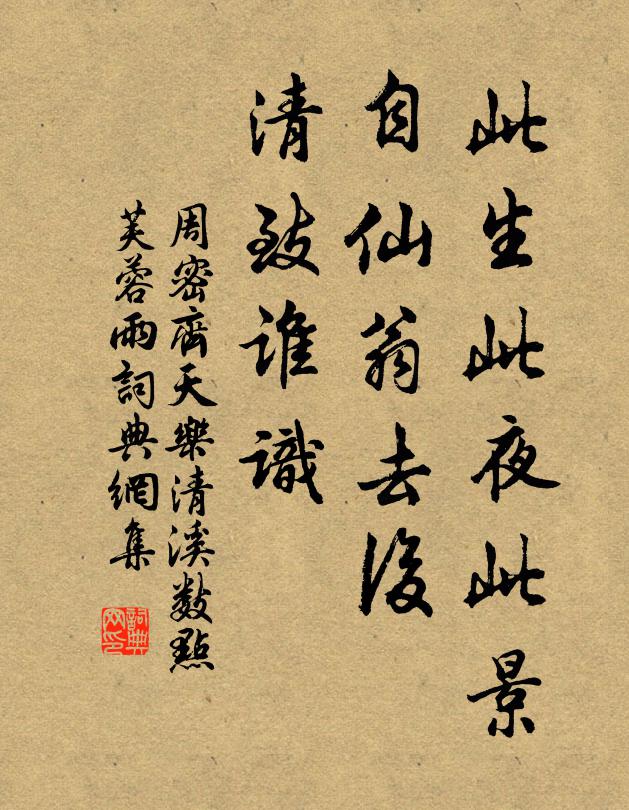 此生此夜此景
自仙翁去後
清致誰識
周密齊天樂清溪數點
芙蓉雨詞典網集
詞典
网印